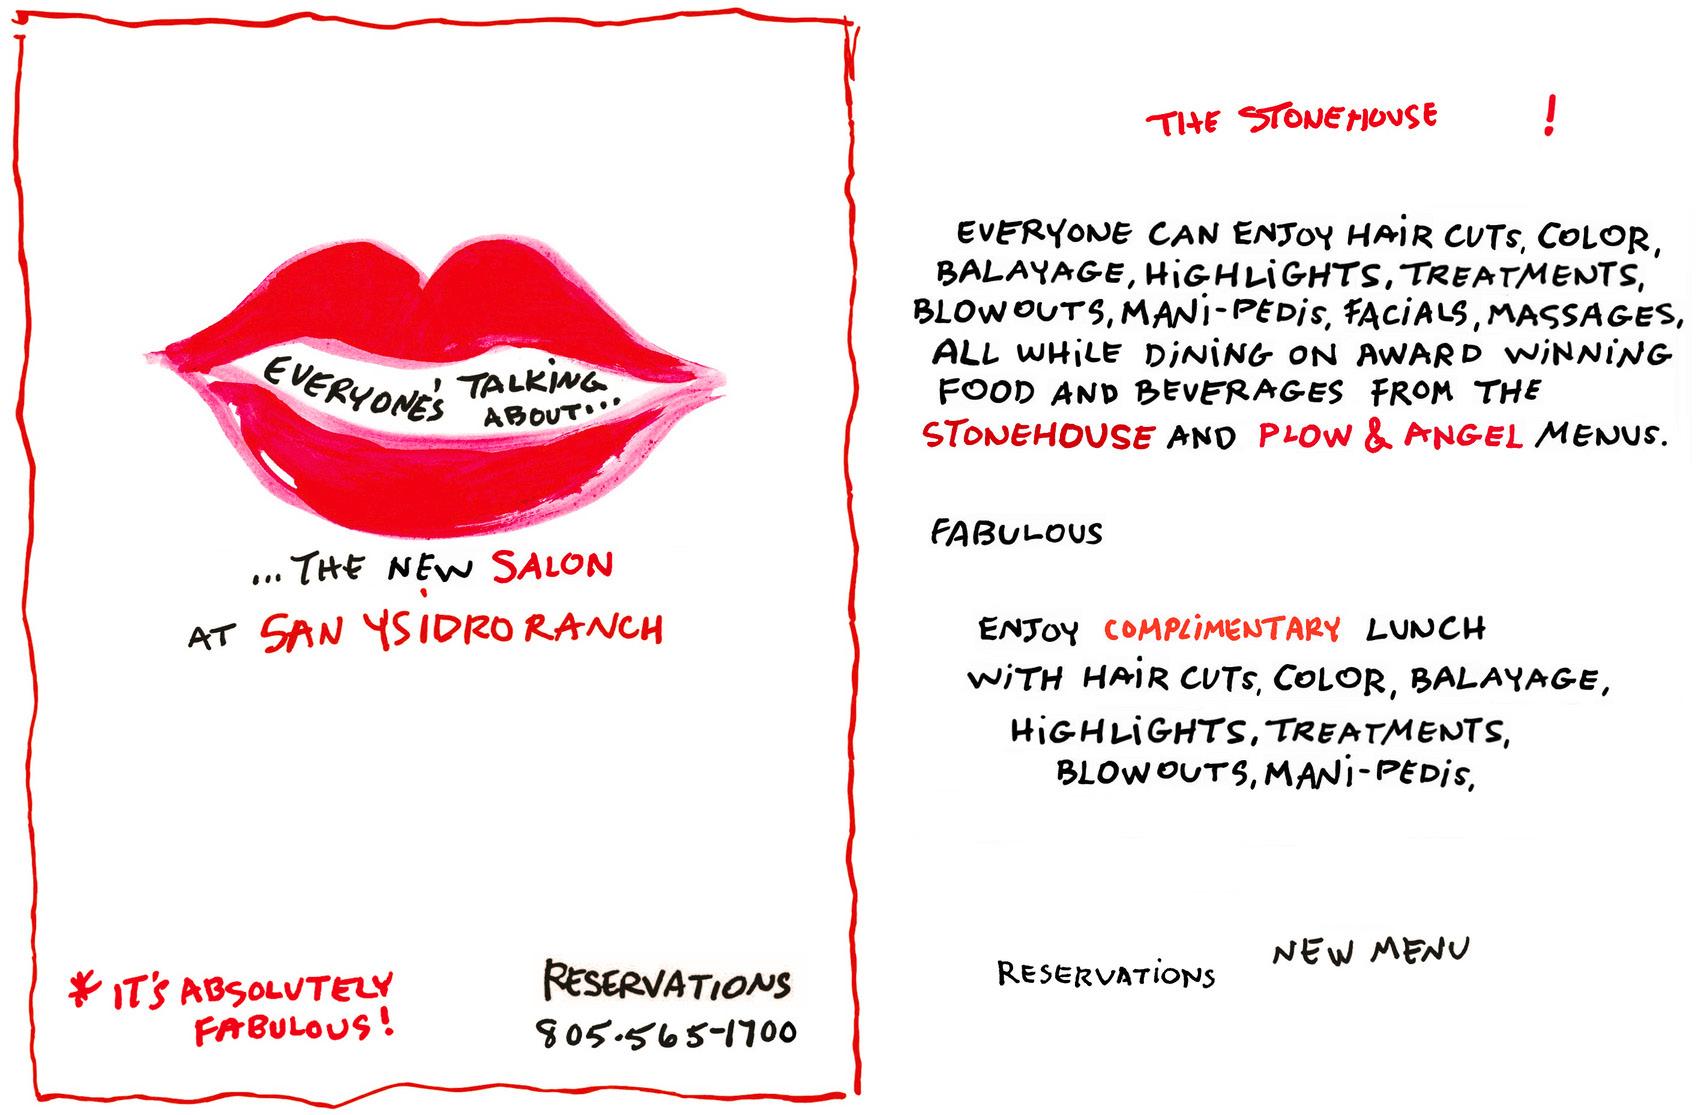 EVERYONE'S TALKING
ABOUT...
...THE NEW SALON
AT SAN YSIDRO RANCH
* IT'S ABSOLUTELY
FABULOUS!
RESERVATIONS
805.565-1700
THE STONEHOUSE !
EVERYONE CAN ENJOY HAIR CUTS, COLOR,
BALAYAGE, HIGHLIGHTS, TREATMENTS,
BLOWOUTS, MANI-PEDIS, FACIALS, MASSAGES,
ALL WHILE DINING ON AWARD WINNING
FOOD AND BEVERAGES FROM THE
STONEHOUSE AND PLOW & ANGEL MENUS.
FABULOUS
ENJOY COMPLIMENTARY LUNCH
WITH HAIR CUTS, COLOR, BALAYAGE,
HIGHLIGHTS, TREATMENTS,
BLOWOUTS, MANI-PEDIS,
NEW MENU
RESERVATIONS